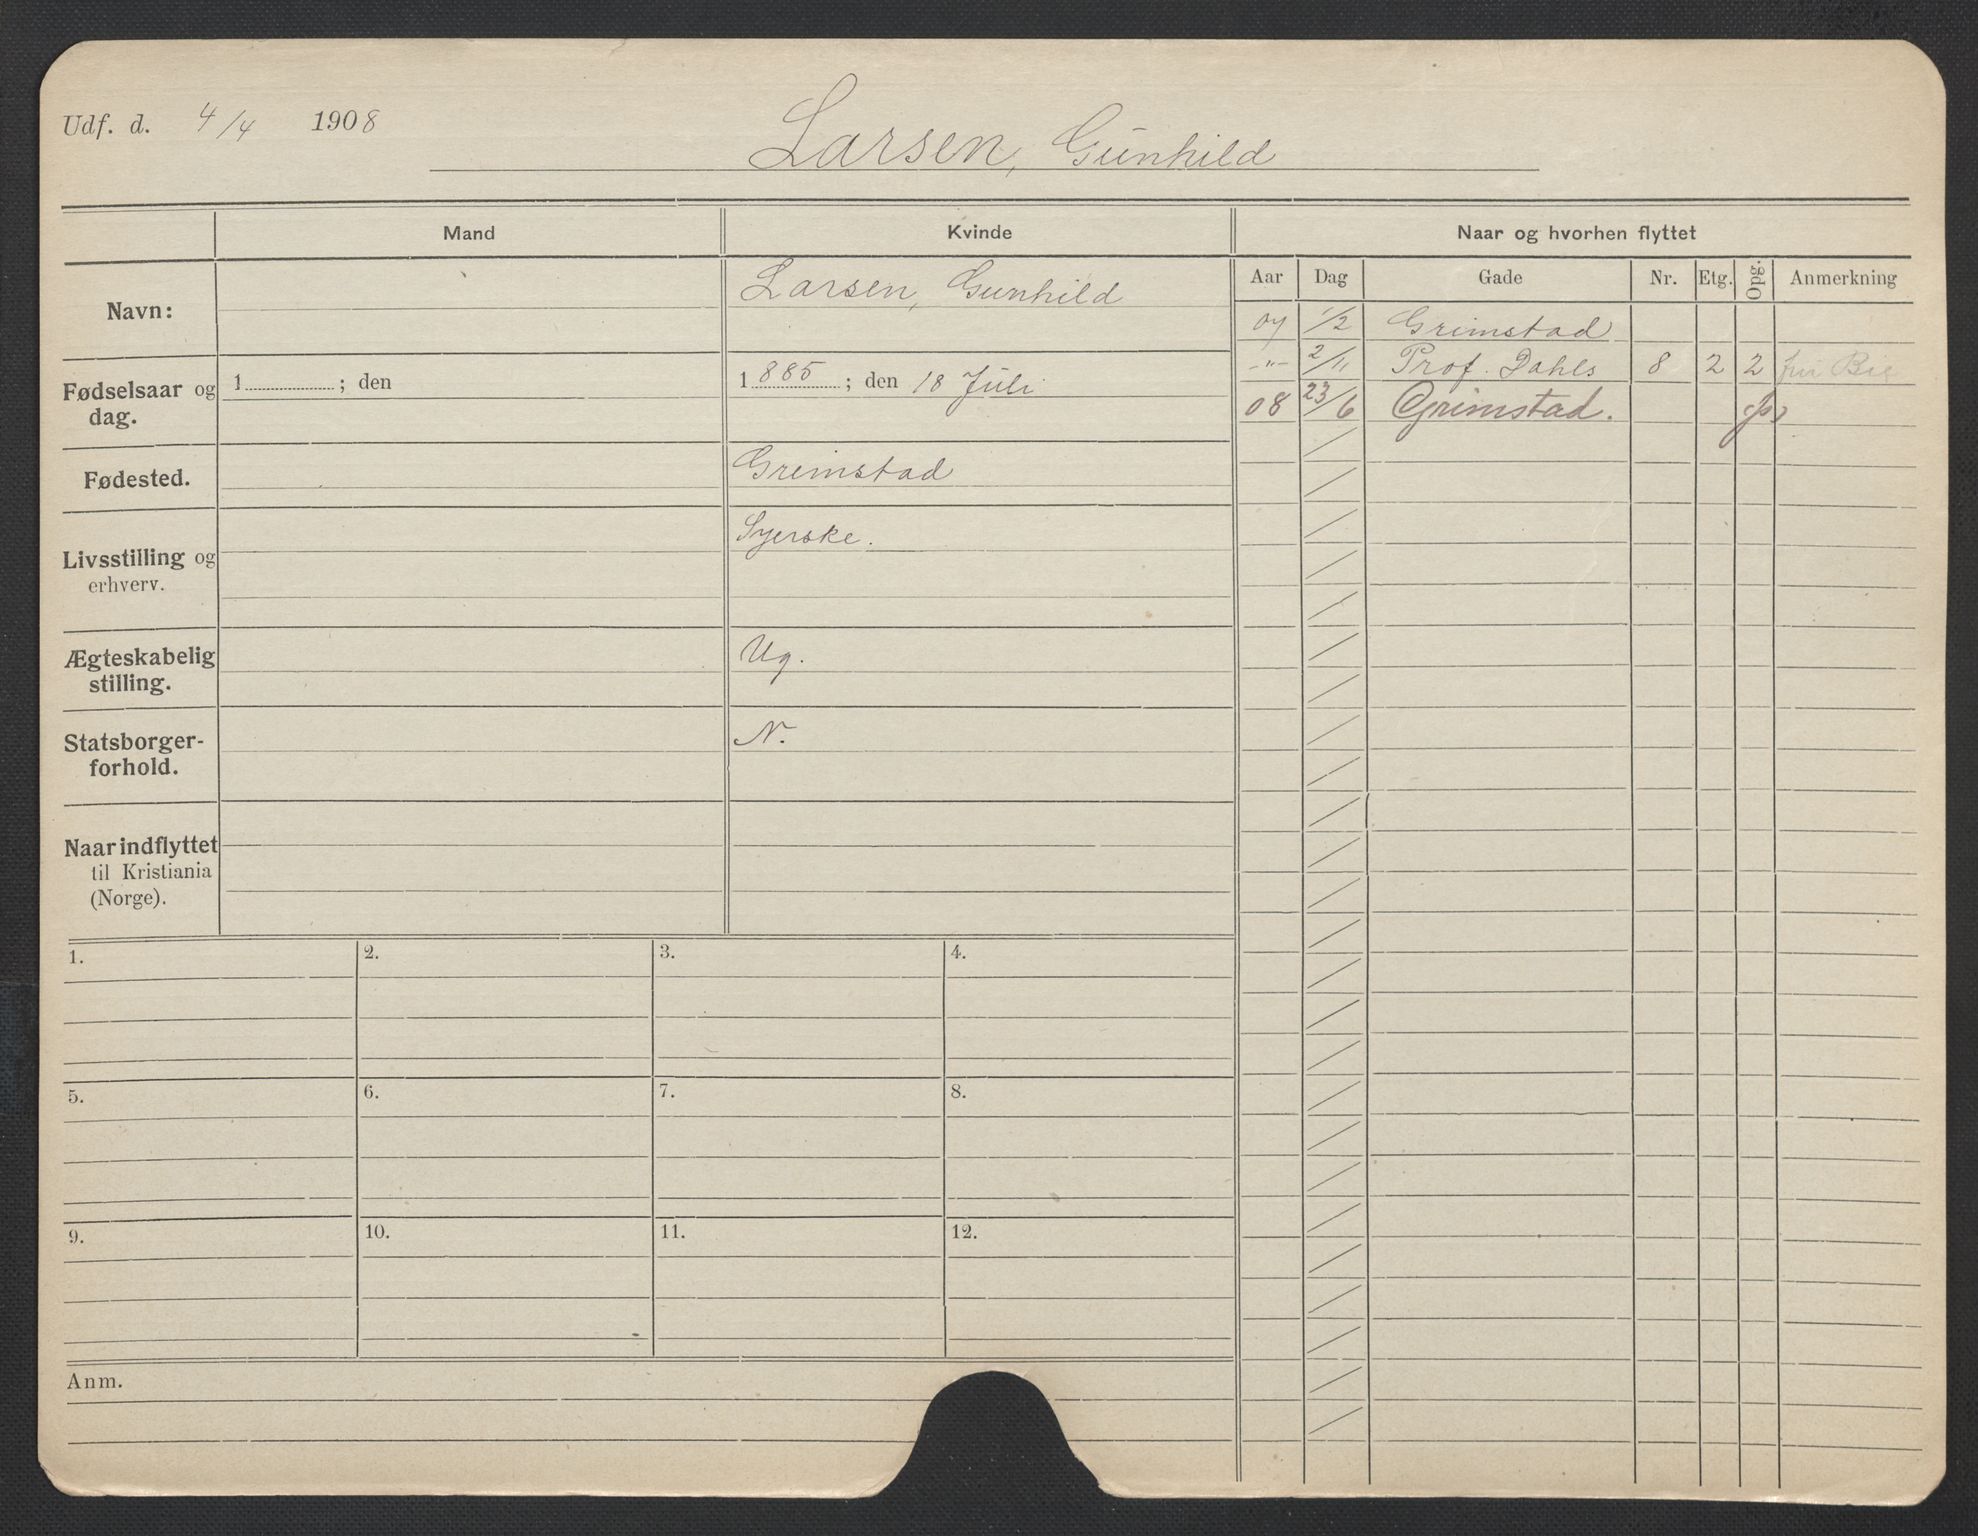 Udf. d. 4/4 1908
Larsen, Gunhild
Mand Kvinde Naar og hvorhen flyttet
Aar Dag Gade Nr. Etg. Opg. Anmerkning
Navn: Larsen, Gunhild
07 1/2 Grimstad
-"- 2/11 Prof. Dahls 8 2 2
08 23/6 Grimstad.
Fødselsaar og 1 ; den 1885 ; den 18 Juli
dag.
Fødested. Grimstad
Livsstilling og Syerske.
erhverv.
Ægteskabelig Ug.
stilling.
Statsborger- N.
forhold.
Naar indflyttet
til Kristiania
(Norge).
1. 2. 3. 4.
5. 6. 7. 8.
9. 10. 11. 12.
Anm.